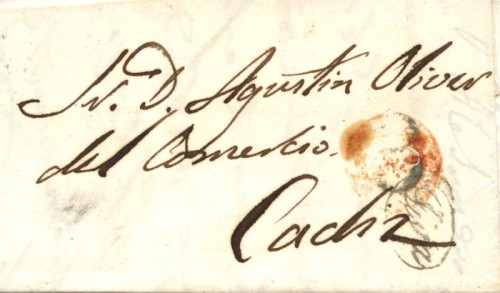 Sr. D. Agustin Oliver
del Comercio.
Cadiz